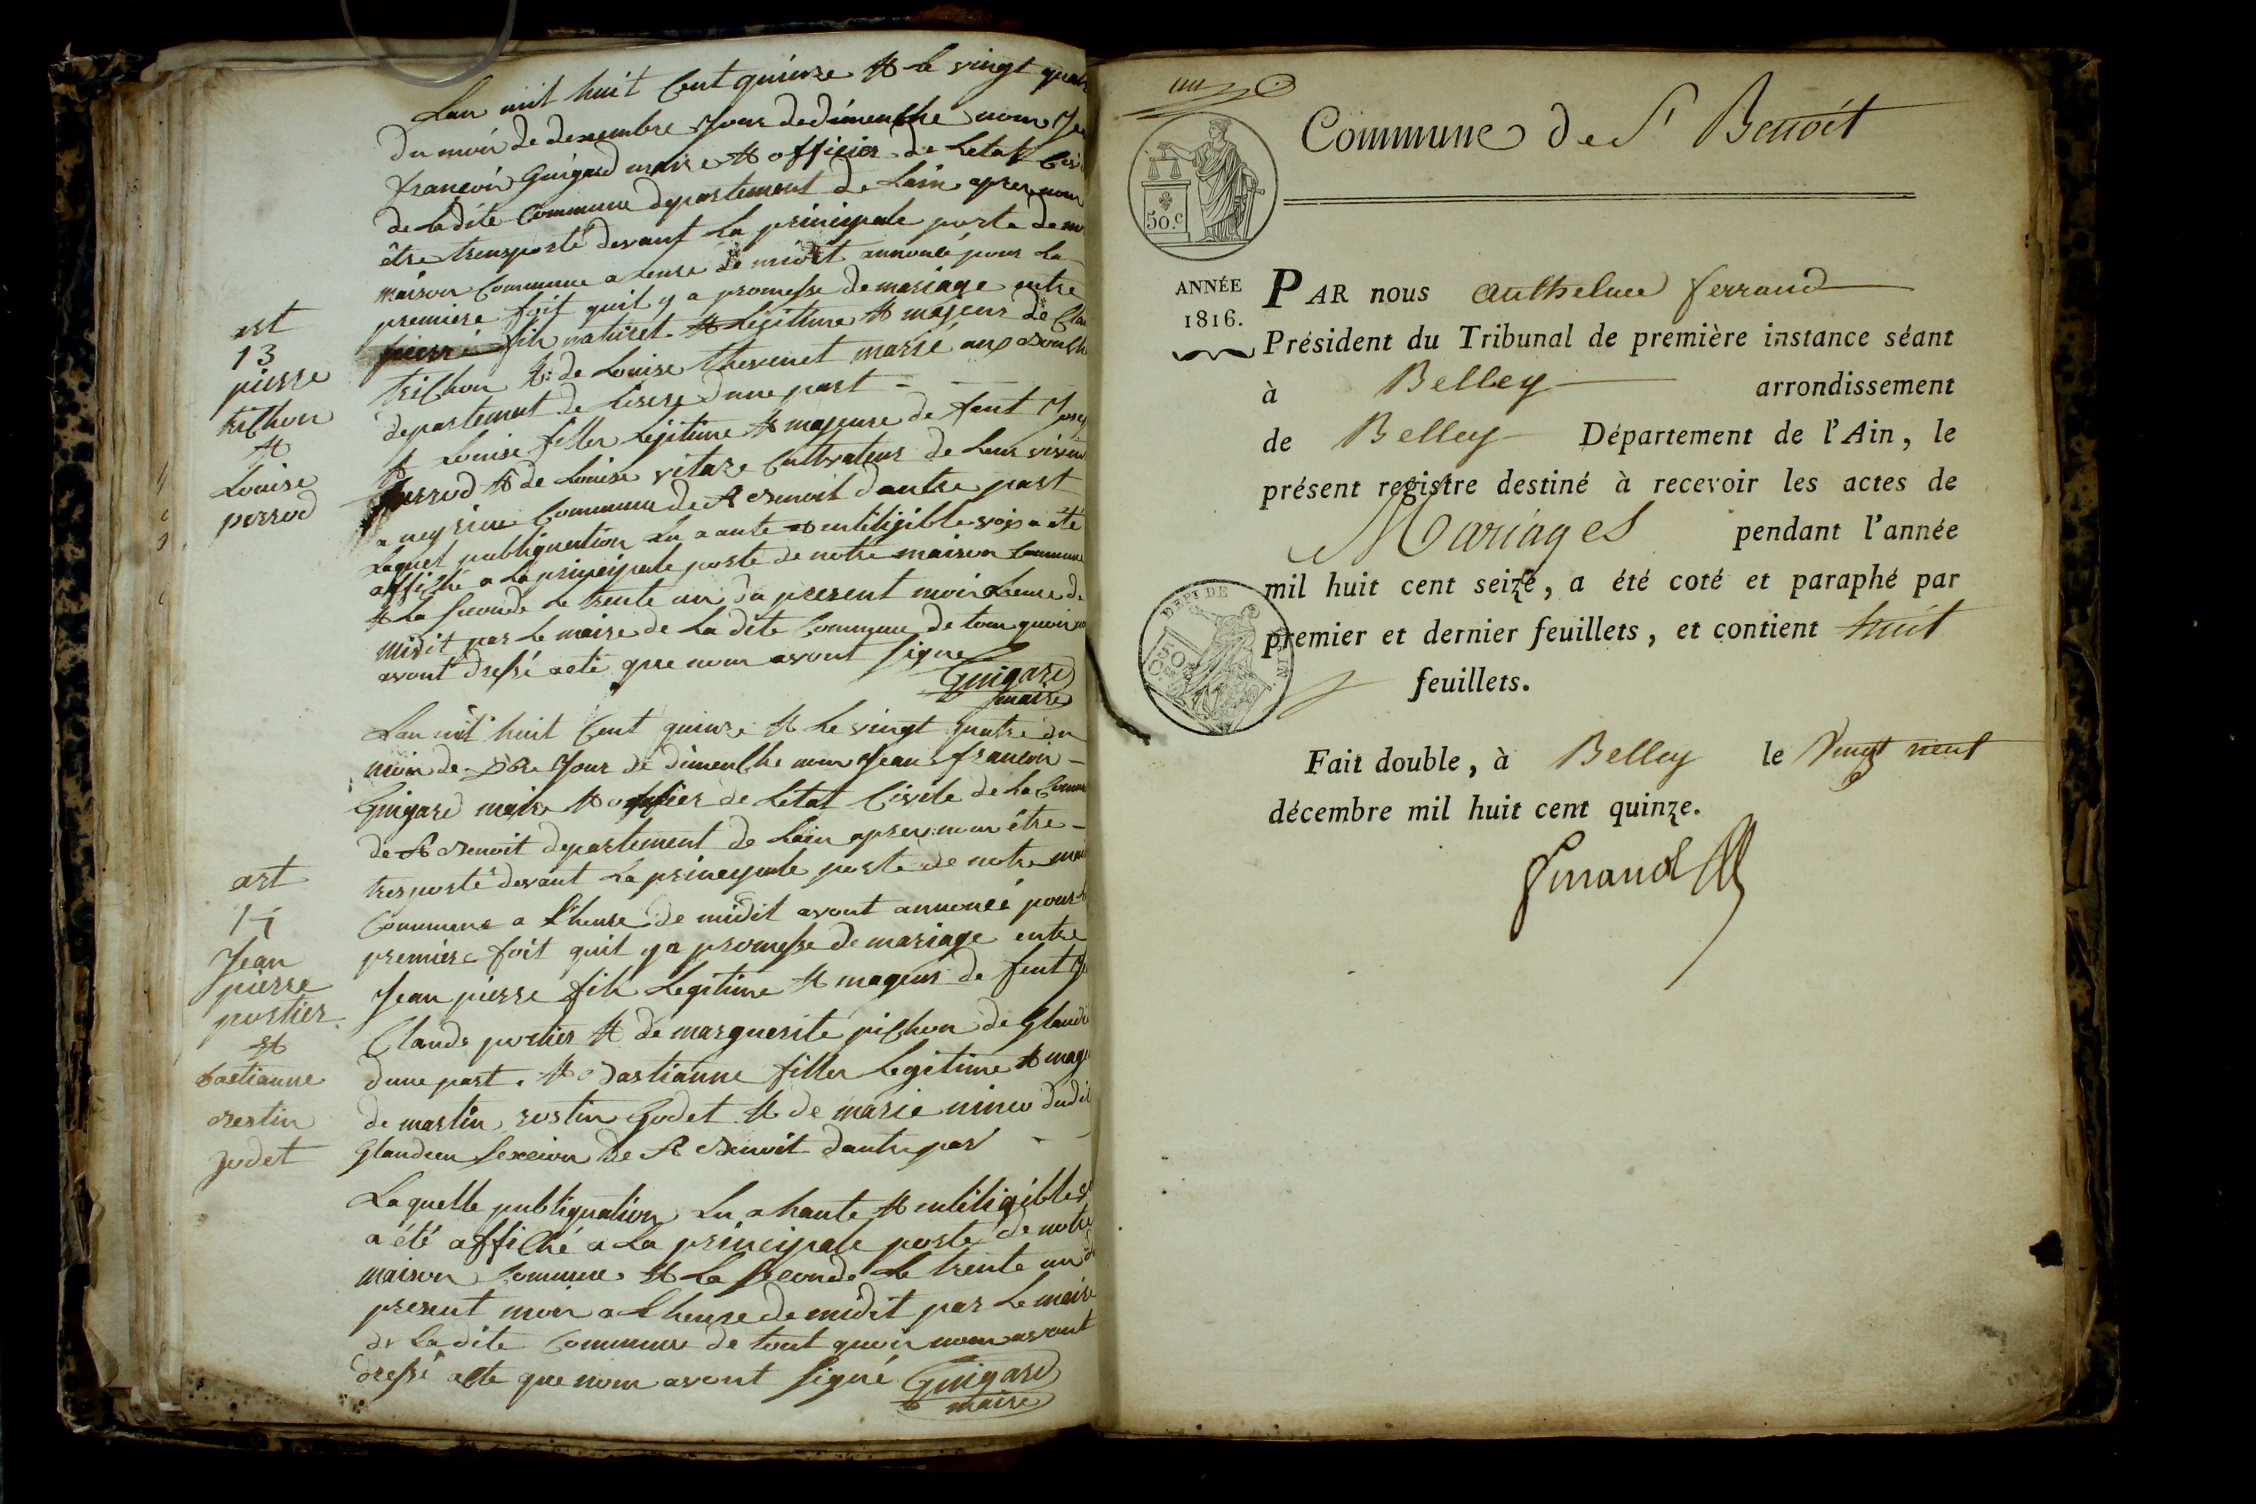 Lan mil huit Cent quinze & Le vingt quatr
du mois de dexembre Jour de dimenche nous Jea
francois Guigard maire & officier de Letat Civi
de la dite Commune departement de Lain apres nous
être transporté devant La principale porte de no
maison Commune a Leure de midit annoncé pour La
premiere foit quil y a promesse de mariage entre
pierre fils naturel & Légittime & majeur de Clau
trichon & de Louise thevenet marié aux
departement de Lisere dune part -
& Louise filles Légitime & majeure de feut Jose
perrod & de Louise vitoze Cultivateurs de Leur vivant
a neyrieu Commune de St Benoit dautre part
Laquel publiquation Lu a aute & intiligible voix a été
affiché a La principale porte de notre maison Commune
& La seconde Le trente un du present mois a Leure de
midit par Le maire de La dite Commune de tous quoi nous
avont dressé acte que nous avont signe
Guigard
maire
art
13
pierre
trichon
&
Louise
perrod
Lan mil huit Cent quinze & Le vingt quatre du
mois de Xbre Jour de dimenche nous Jean francois -
Guigard maire & officier de Letat Civile de La Commun
de St Benoit departement de Lain apres nous être -
tresporté devant La principale porte de notre mai
Commune a l'heure de midit avont annoncé pour
premiere foit quil y a promesse de mariage entre
Jean pierre fils Legitime & mageur de feut
Claude portier & de marguerite pichon de Glandi
dune part. & Bastianne filles Legitime & mage
de martin restin Godet & de marie ninco dudit
Glandieu sexcion de St Benoit dautre par -
Laquelle publiquation Lu a haute & intiligible
a été affiché a La principale porte de notre
maison Commune & La seconde Le trente un d
present mois a L'heure de midit par Le maire
de La dite Commune de tout quoi nous avont
dressé acte que nous avont signé Guigard
maire
art
14
Jean
pierre
portier
&
bastianne
restin
Jodet
Commune de St Benoît
50.c
ANNÉE
1816.
PAR nous Anthelme ferrand
Président du Tribunal de première instance séant
à Belley arrondissement
de Belley Département de l'Ain, le
présent registre destiné à recevoir les actes de
Mariages pendant l'année
mil huit cent seize, a été coté et paraphé par
premier et dernier feuillets, et contient huit
feuillets.
DEP. DE L'AIN
50
Fait double, à Belley le Vingt neuf
décembre mil huit cent quinze.
ferrand